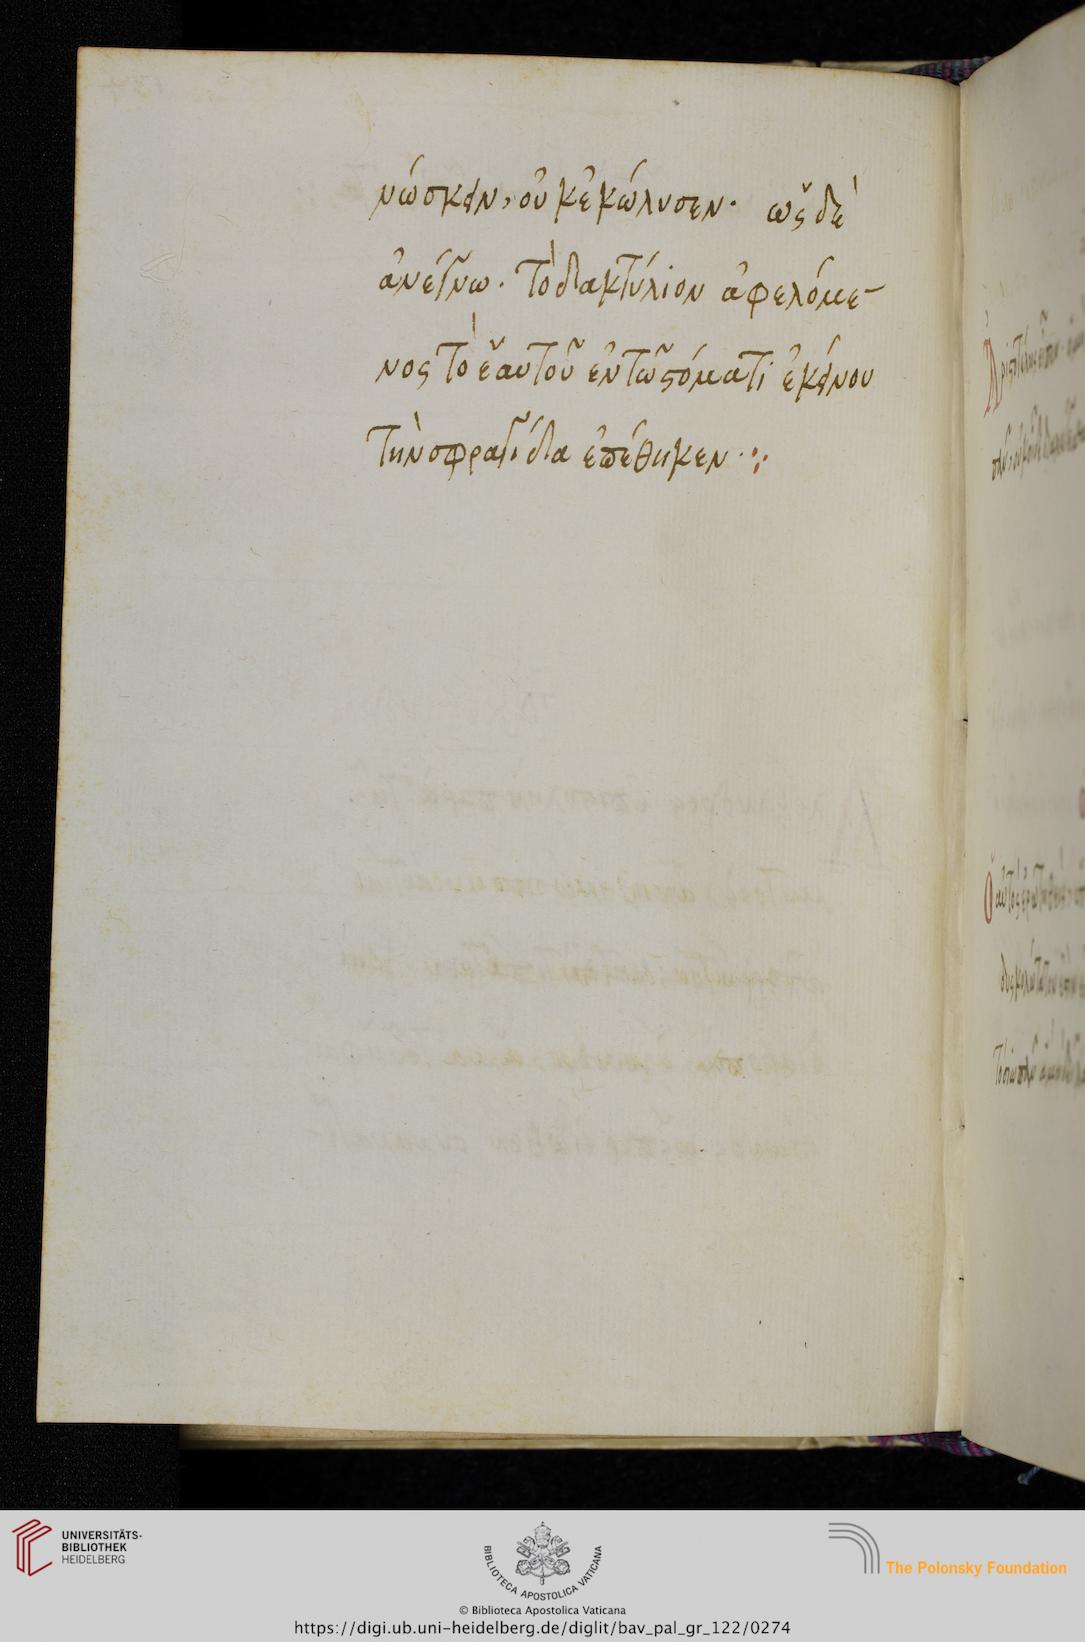 νώσκειν, οὐκ ἐκώλυσεν· ὡς δὲ
ἀνέγνω· τὸ δακτύλιον ἀφελόμε-
νος τὸ ἑαυτοῦ ἐν τῶ στόματι ἐκείνου
τὴν σφραγίδα ἐπέθηκεν·:
UNIVERSITÄTS-
BIBLIOTHEK
HEIDELBERG
BIBLIOTECA APOSTOLICA VATICANA
The Polonsky Foundation
© Biblioteca Apostolica Vaticana
https://digi.ub.uni-heidelberg.de/diglit/bav_pal_gr_122/0274